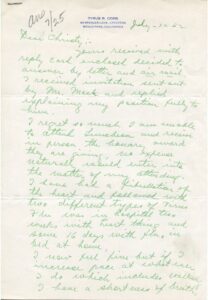 ans 7/25
TYRUS R. COBB
MENLO PARK, CALIFORNIA
July
Dear Christy:
Yours received with
reply card enclosed decided to
answer by letter and air mail
I received invitation sent
by Mr. Meek and replied
explaining my position fully to
him.
I regret so much I am unable
to attend luncheon and receive
in person the honory award
they are giving, no expense
natural would enter into
the matter of my attending.
I have had a fibulation of
the heart and followed with
two different types of virus
Flu was in hospital two
weeks with heart thing and
some 16 days with flu, in
bed at home.
I now feel fine but if I
increase pace at
I do which includes
I have a shortness of breath